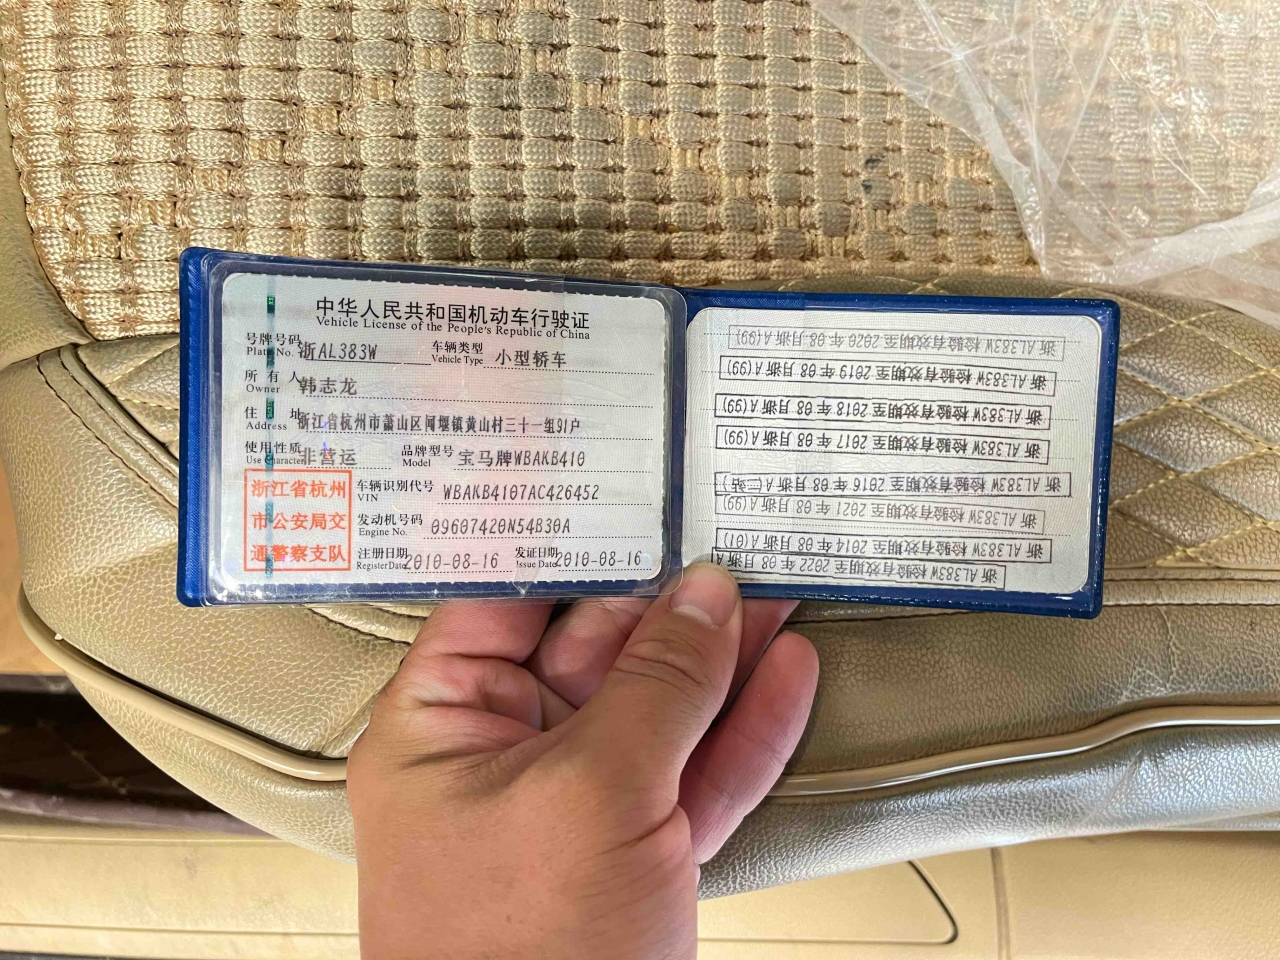 中华人民共和国机动车行驶证
Vehicle License of the People's Republic of China
号牌号码 浙AL383W 车辆类型 小型轿车
Plate No. Vehicle Type
所有人 韩志龙
Owner
住址 浙江省杭州市萧山区闻堰镇黄山村三十一组91户
Address
使用性质 非营运 品牌型号 宝马牌WBAKB410
Use Character Model
浙江省杭州
市公安局交
通警察支队
车辆识别代号 WBAKB4107AC426452
VIN
发动机号码 09607420N54B30A
Engine No.
注册日期 2010-08-16 发证日期 2010-08-16
Register Date Issue Date
浙AL383W 检验有效期至 2022 年 08 月浙 A
浙AL383W 检验有效期至 2014 年 08 月浙 A(01)
浙AL383W 检验有效期至 2021 年 08 月浙 A(99)
浙AL383W 检验有效期至 2016 年 08 月浙 A(二站)
浙AL383W 检验有效期至 2017 年 08 月浙 A(99)
浙AL383W 检验有效期至 2018 年 08 月浙 A(99)
浙AL383W 检验有效期至 2019 年 08 月浙 A(99)
浙AL383W 检验有效期至 2020 年 08 月浙 A(99)